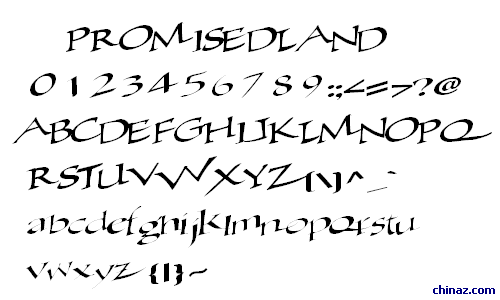 PROMISEDLAND
0123456789:;<=>?@
ABCDEFGHIJKLMNOPQ
RSTUVWXYZ[\]^_`
abcdefghijklmnopqrstu
vwxyz{|}~
chinaz.com